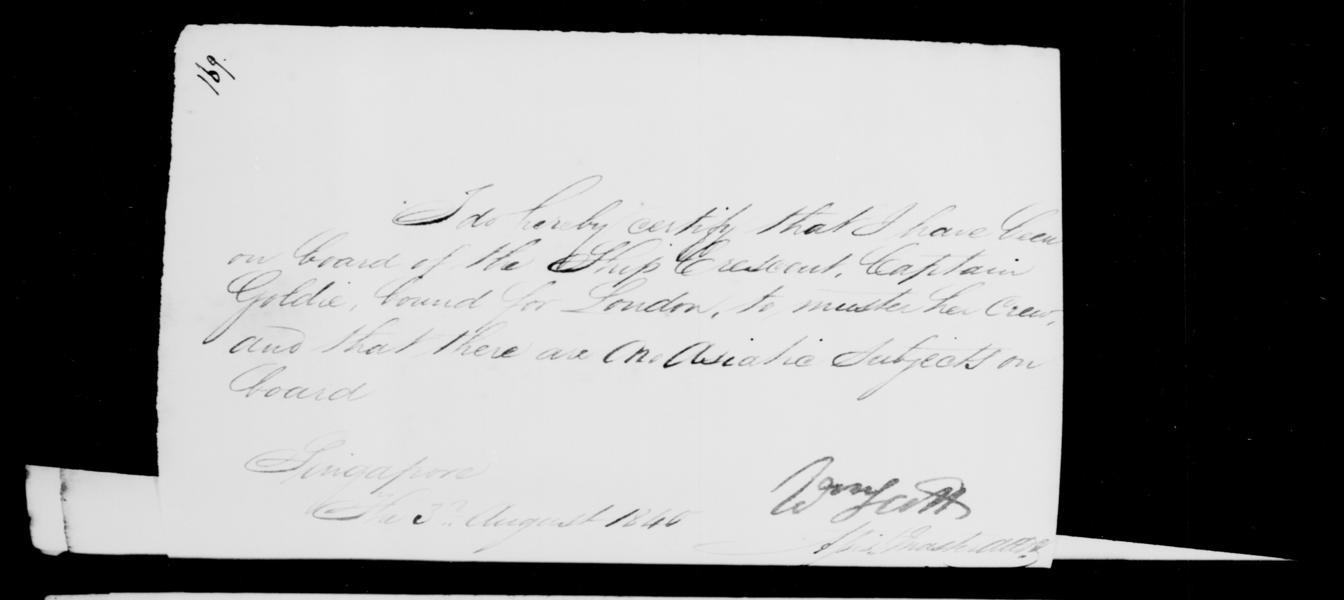 169.
I do hereby certify that I have been
on board of the Ship Crescent, Captain
Goldie, bound for London, to muster her Crew,
and that there are One Asiatic Subjects on
board
Singapore
The 3rd August 1840
Wm Scott